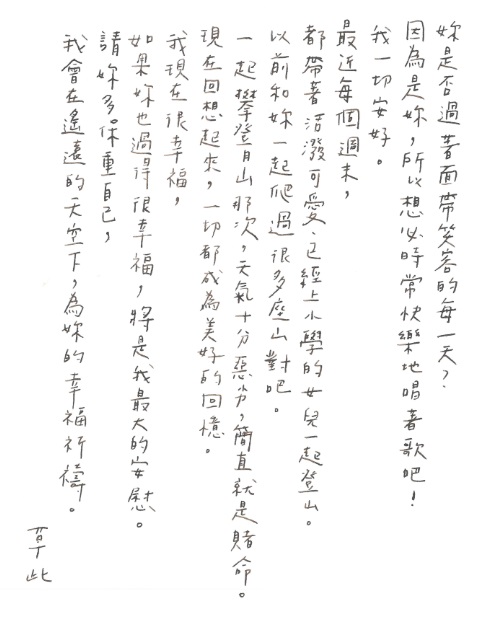 妳是否過著面帶笑容的每一天？
因為是妳，所以想必時常快樂地唱著歌吧！
我一切安好。
最近每個週末，
都帶著活潑可愛、已經上小學的女兒一起登山。
以前和妳一起爬過很多座山對吧。
一起攀登月山那次，天氣十分惡劣，簡直就是賭命。
現在回想起來，一切都成為美好的回憶。
我現在很幸福，
如果妳也過得很幸福，將是我最大的安慰。
請妳多保重自己，
我會在遙遠的天空下，為妳的幸福祈禱。
草此